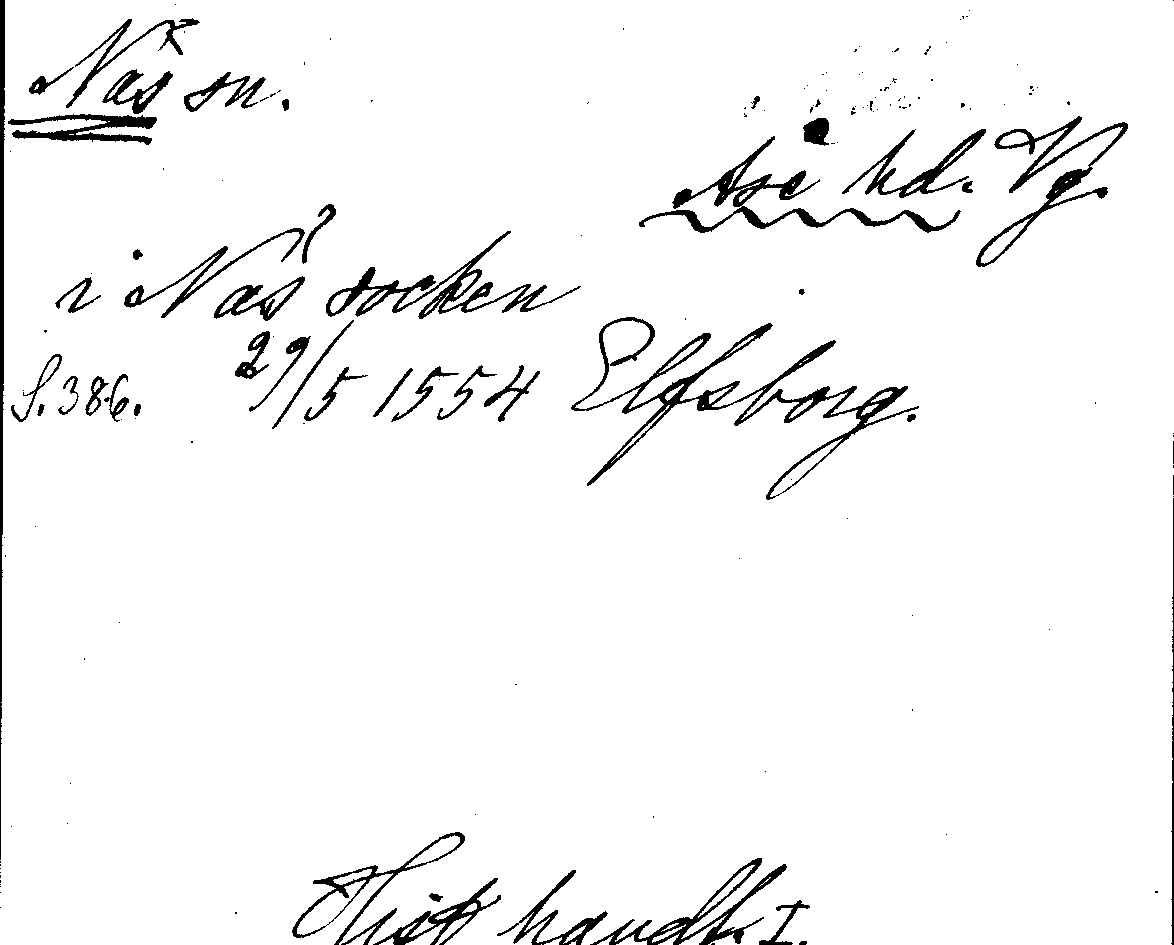 Näs sn.
Åse hd. Vg.
i Näs socken
S. 386. 29/5 1554 Elfsborg.
Hist handl. I.